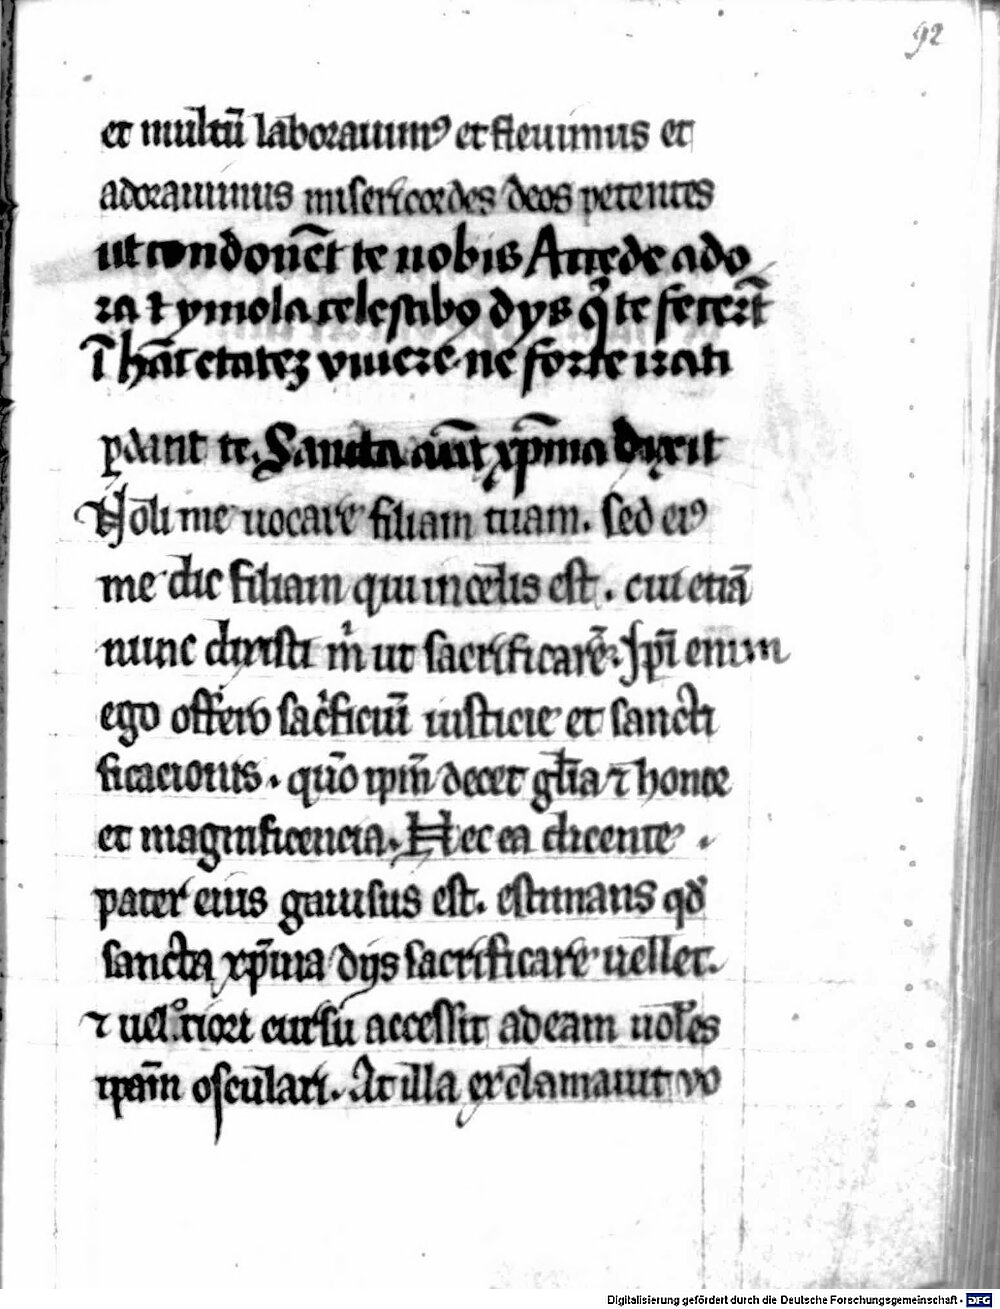 92
et multū laborauimꝰ et fleuimus et
adorauimus misericordes deos petentes
ut condonēt te nobis Accede ado
ra ⁊ ymola celestibꝫ dijs q̄ te fecer̄t
ī hāc etateꝫ viuere ne forte irati
ꝑdant te. Sancta aūt xp̄ina dixit
Noli me uocare filiam tuam. sed eiꝰ
me dic filiam qui in celis est. cui etiā
nunc dixisti m̄ ut sacrificarē. Ip̄i enim
ego offero sac̄ficiū iusticie et sancti
ficacionis. quō ip̄m decet gl̄ia ⁊ honor
et magnificencia. Hec ea dicente.
pater eius gauisus est. estimans qđ
sancta xp̄ina dijs sacrificare uellet.
⁊ uelociori cursu accessit ad eam uolēs
ip̄am osculari. At illa exclamauit vo
Digitalisierung gefördert durch die Deutsche Forschungsgemeinschaft - DFG